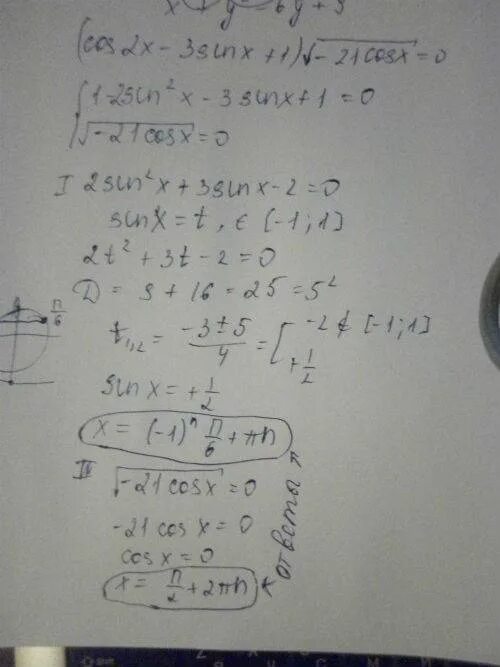 x + y = 6y + 9
(cos2x - 3sinx + 1)√-21cosx = 0
{1-2sin²x - 3sinx + 1 = 0
√-21cosx = 0
I 2sin²x + 3sinx - 2 = 0
sinx = t, ∈ [-1; 1]
2t² + 3t - 2 = 0
D = 9 + 16 = 25 = 5²
π/6
t₁,₂ = (-3 ± 5)/4 = [ -2 ∉ [-1; 1]
+1/2
sinx = +1/2
x = (-1)ⁿ π/6 + πn
II √-21cosx = 0
-21cosx = 0
cosx = 0
x = π/2 + 2πn
ответы